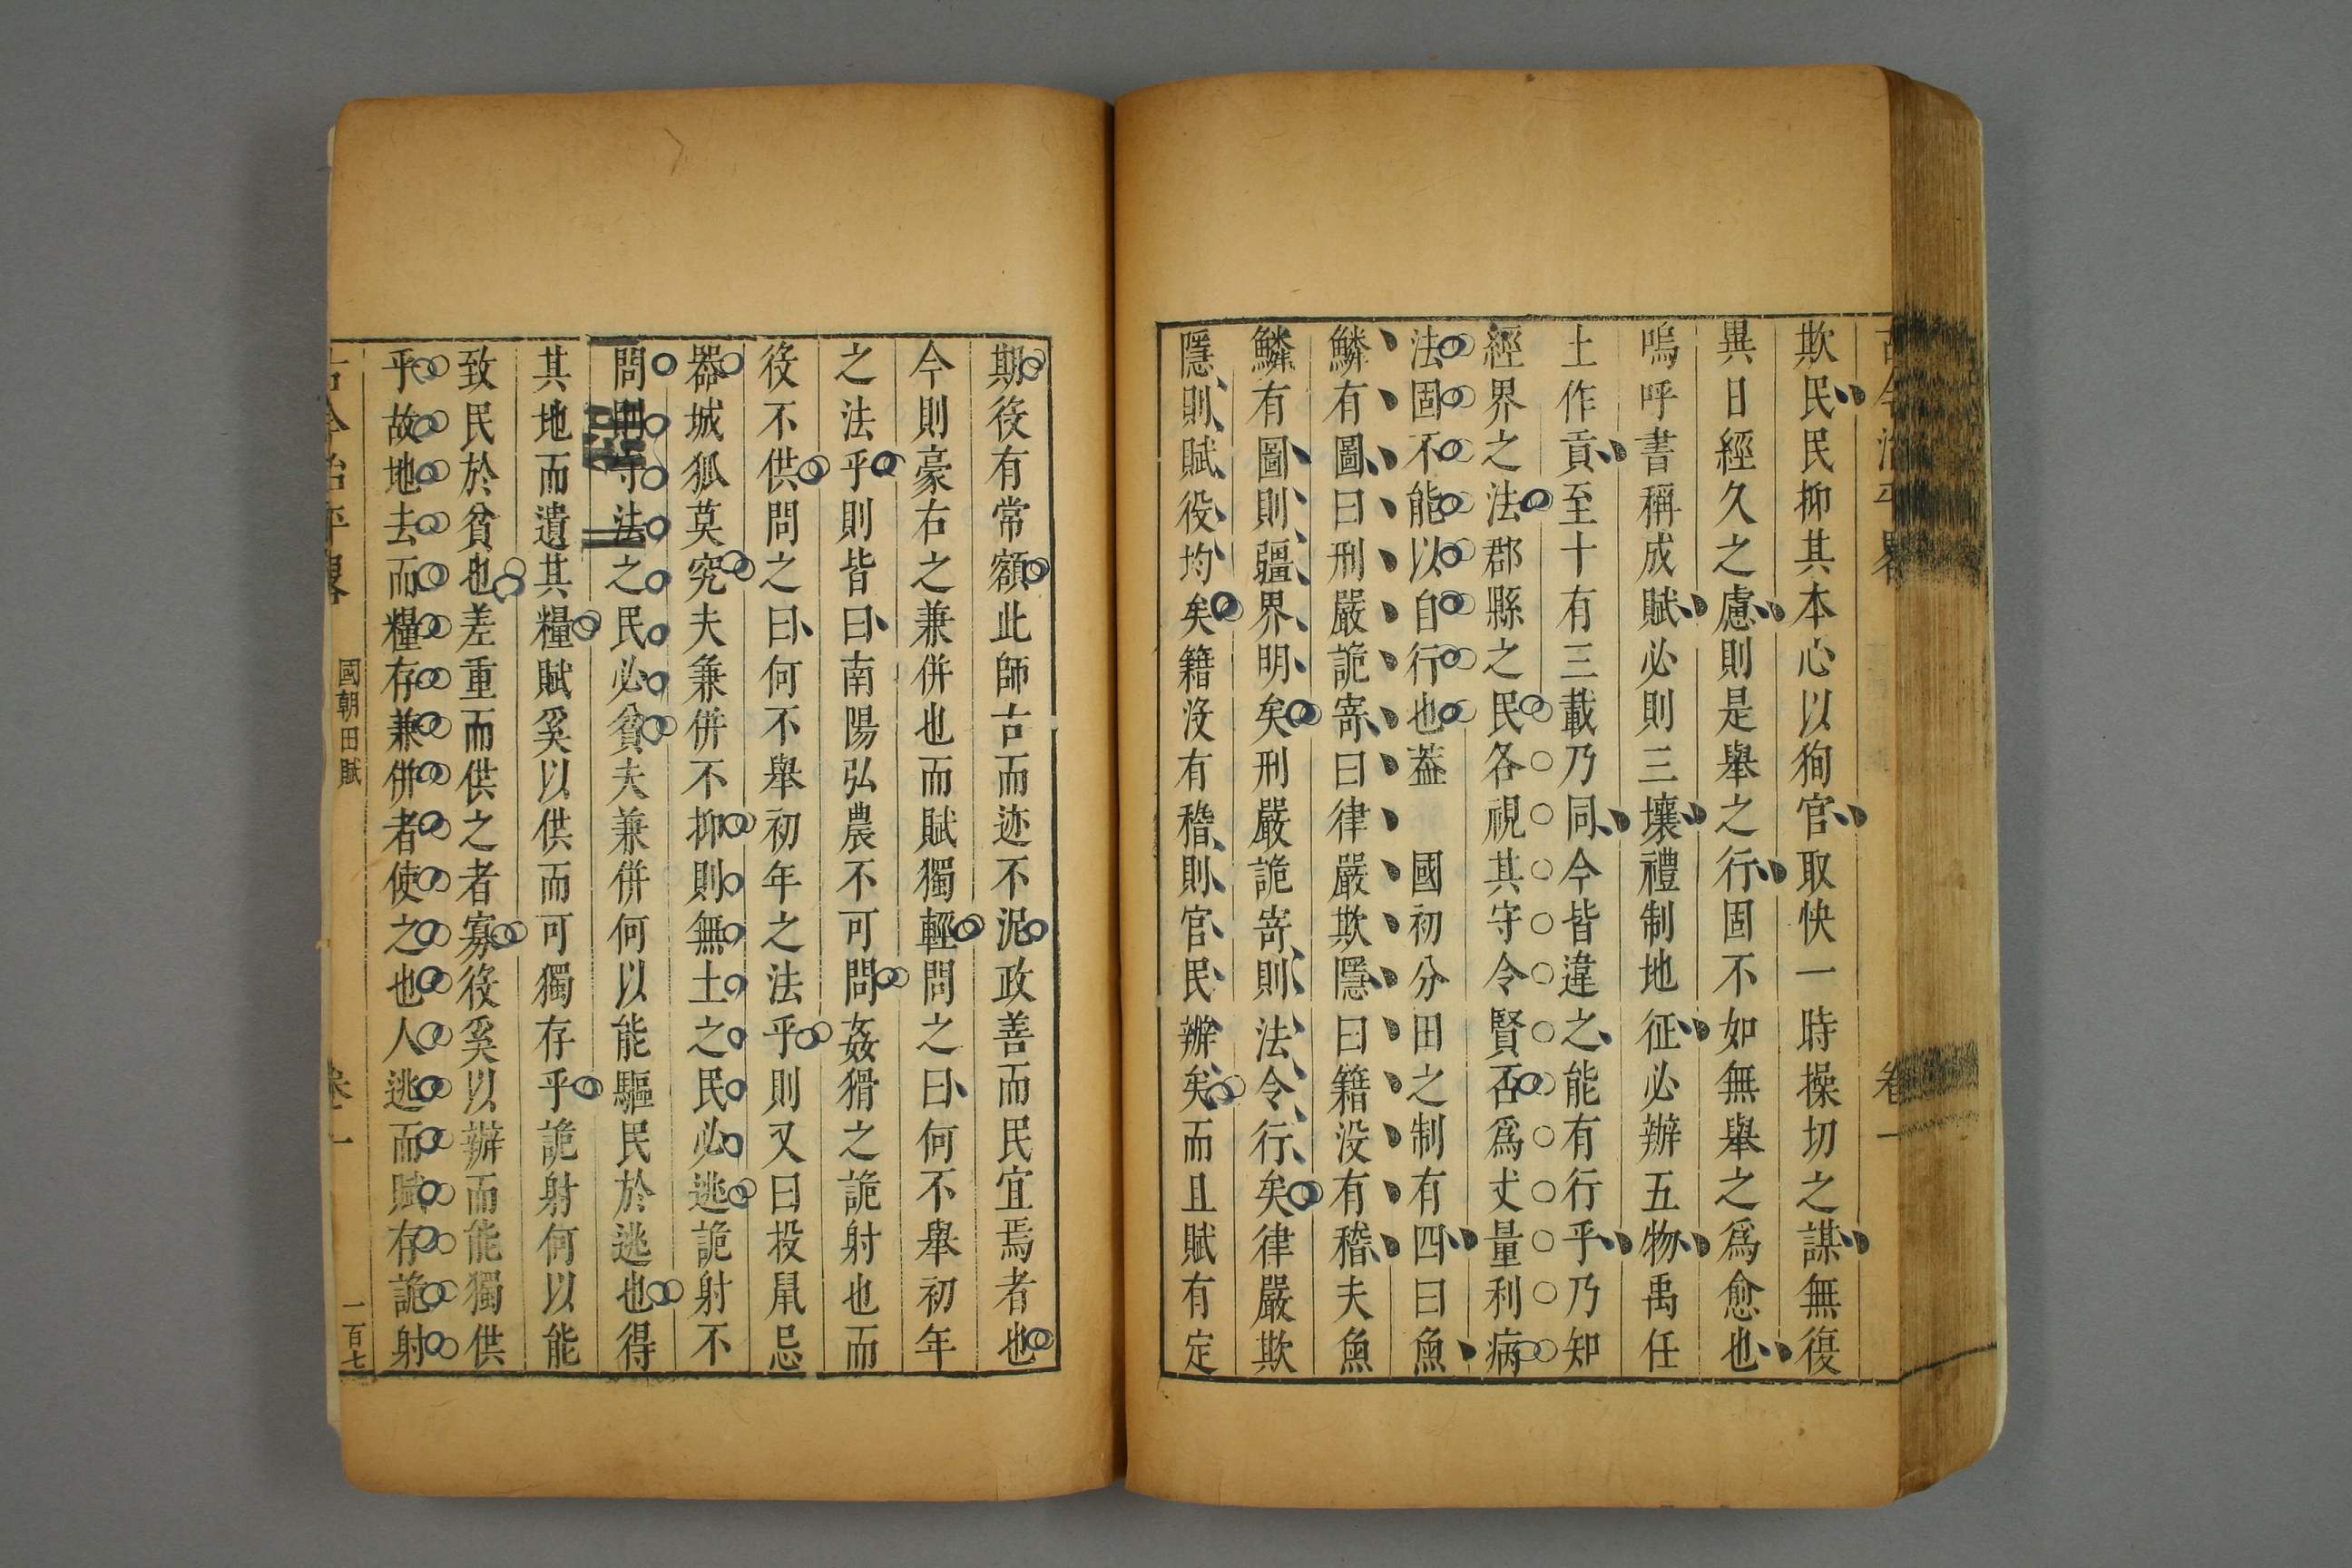 古今治平畧 卷一
欺民民抑其本心以狥官取快一時操切之謀無復
異日經久之慮則是舉之行固不如無舉之爲愈也
嗚呼書稱成賦必則三壤禮制地征必辦五物禹任
土作貢至十有三載乃同今皆違之能有行乎乃知
經界之法郡縣之民各視其守令賢否爲丈量利病
法固不能以自行也葢 國初分田之制有四曰魚
鱗有圖曰刑嚴詭寄曰律嚴欺隱曰籍没有稽夫魚
鱗有圖則疆界明矣刑嚴詭寄則法令行矣律嚴欺
隱則賦役均矣籍沒有稽則官民辦矣而且賦有定
期役有常額此師古而迹不泥政善而民宜焉者也
今則豪右之兼併也而賦獨輕問之曰何不舉初年
之法乎則皆曰南陽弘農不可問姦猾之詭射也而
役不供問之曰何不舉初年之法乎則又曰投鼠忌
器城狐莫究夫兼併不抑則無土之民必逃詭射不
問則守法之民必貧夫兼併何以能驅民於逃也得
其地而遺其糧賦奚以供而可獨存乎詭射何以能
致民於貧也差重而供之者寡役奚以辦而能獨供
乎故地去而糧存兼併者使之也人逃而賦存詭射
古今治平畧 國朝田賦 卷一 一百七